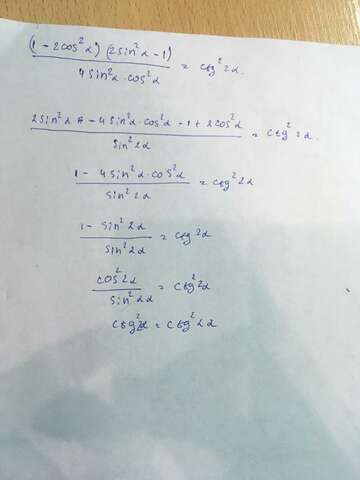 (1 - 2cos²α)(2sin²α - 1) / 4sin²α·cos²α = ctg²2α.
2sin²α - 4sin²α·cos²α - 1 + 2cos²α / sin²2α = ctg²2α.
1 - 4sin²α·cos²α / sin²2α = ctg²2α
1 - sin²2α / sin²2α = ctg2α
cos²2α / sin²2α = ctg²2α
ctg²2α = ctg²2α